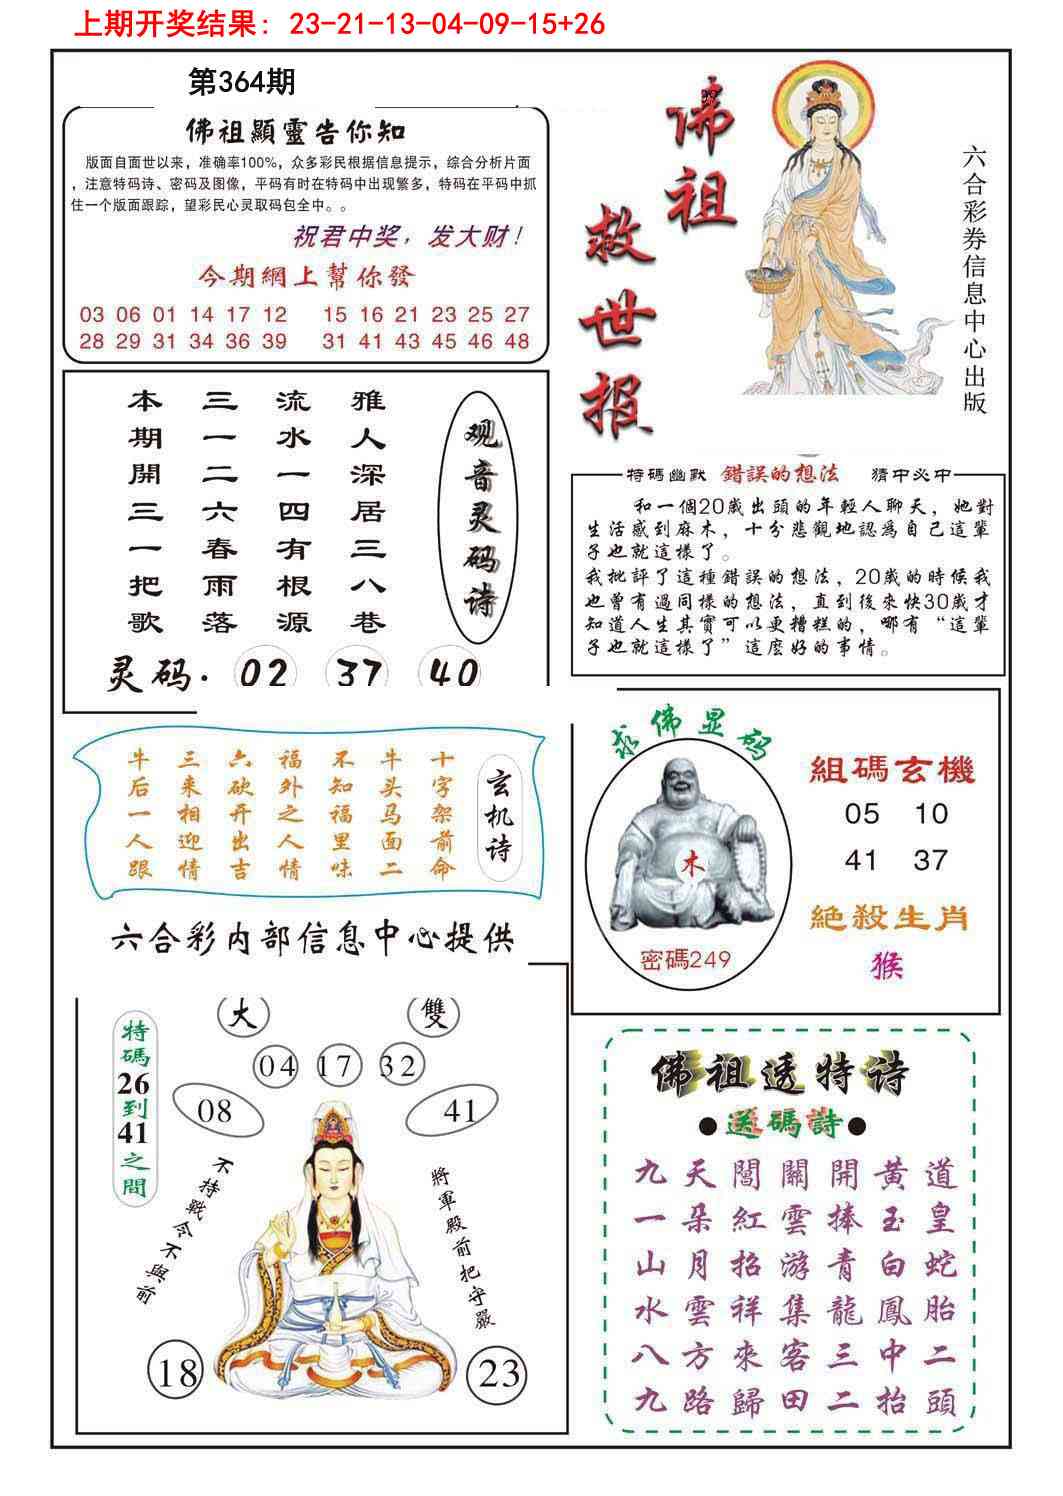 上期开奖结果：23-21-13-04-09-15+26
第364期
佛祖顯靈告你知
版面自面世以来，准确率100%，众多彩民根据信息提示，综合分析片面
，注意特码诗、密码及图像，平码有时在特码中出现繁多，特码在平码中抓
住一个版面跟踪，望彩民心灵取码包全中。。
祝君中奖，发大财！
今期網上幫你發
03 06 01 14 17 12 15 16 21 23 25 27
28 29 31 34 36 39 31 41 43 45 46 48
佛祖
救世报
六合彩券信息中心出版
本期開三一把歌
三一二六春雨落
流水一四有根源
雅人深居三八巷
观音灵码诗
灵码·02 37 40
特碼幽默 錯誤的想法 猜中必中
和一個20歲出頭的年輕人聊天，她對
生活感到麻木，十分悲觀地認為自己這輩
子也就這樣了。
我批評了這種錯誤的想法，20歲的時候我
也曾有過同樣的想法，直到後來快30歲才
知道人生其實可以更糟糕的，哪有“這輩
子也就這樣了”這麼好的事情。
牛后一人跟
三来相迎情
六砍开出吉
福外之人情
不知福里味
牛头马面二
十字架前命
玄机诗
六合彩内部信息中心提供
求佛显码
木
密碼249
組碼玄機
05 10
41 37
絕殺生肖
猴
特碼26到41之間
大 雙
04 17 32
08 41
不持戰令不與前
將軍殿前把守嚴
18 23
佛祖透特诗
●送碼詩●
九天閶關開黃道
一朵紅雲捧玉皇
山月招游青白蛇
水雲祥集龍鳳胎
八方來客三中二
九路歸田二抬頭